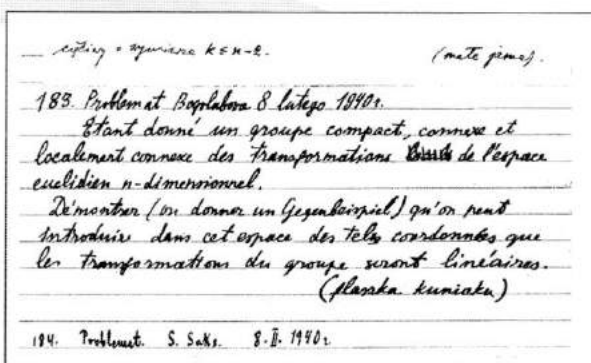 wymiarze k ≤ n-2. (małe piwo).
183. Problemat Bogolubova 8 lutego 1940r.
Etant donné un groupe compact, connexe et
localement connexe des transformations de l'espace
euclidien n-dimensionnel.
Démontrer (ou donner un Gegenbeispiel) qu'on peut
introduire dans cet espace des tels coordonnées que
les transformations du groupe seront linéaires.
(flaszka koniaku)
184. Problemat. S. Saks. 8.II.1940r